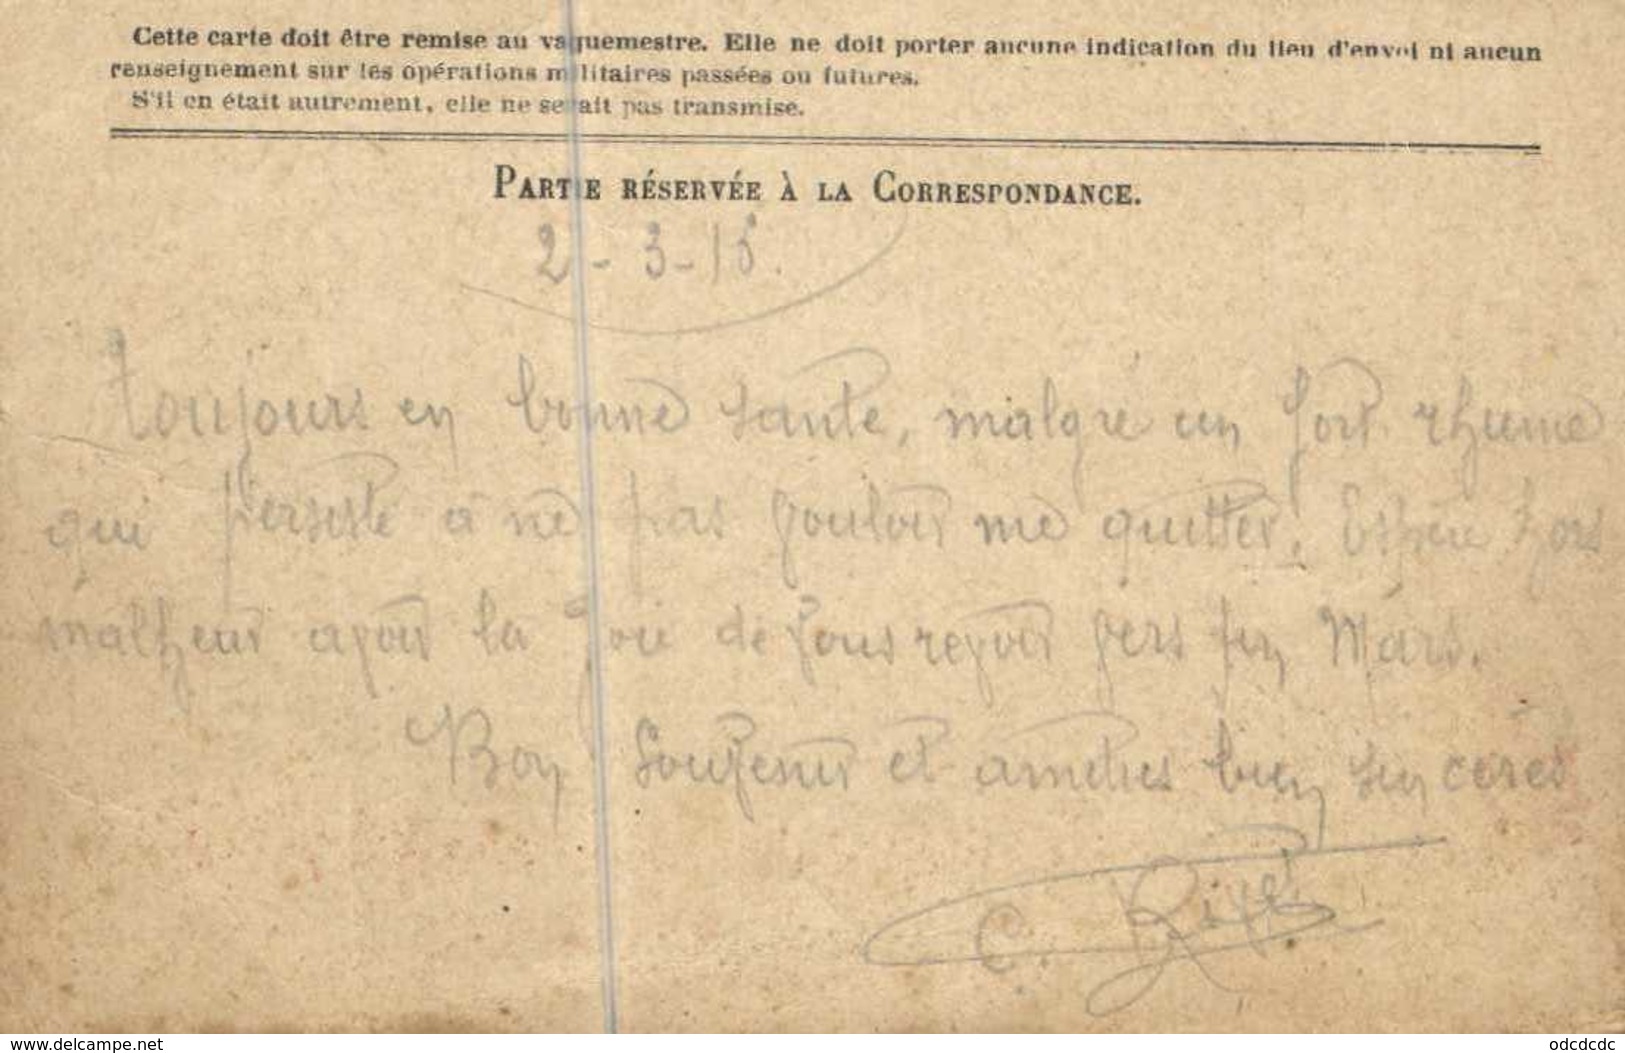 Cette carte doit être remise au vaguemestre. Elle ne doit porter aucune indication du lieu d'envoi ni aucun
renseignement sur les opérations militaires passées ou futures.
S'il en était autrement, elle ne serait pas transmise.
PARTIE RÉSERVÉE À LA CORRESPONDANCE.
2-3-15.
Toujours en bonne santé, malgré un fort rhume
qui persiste à ne pas vouloir me quitter. Espère hors
malheur avoir la joie de vous revoir vers fin Mars.
Bon Souvenir et amitiés bien sincères
C.
www.delcampe.net
odcdcdc